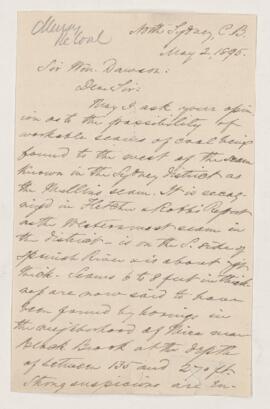 North Sydney C. B.
May 2, 1895.
Sir Wm. Dawson:
Dear Sir:
May I ask your opin-
ion as to the possibility of
workable seams of coal being
found to the west of the seam
known in the Sydney District as
the Mullins seam. It is
in Fletcher & Robb's Report
as the Westernmost seam in
the District - is on the S. side of
Spanish River & is about 7 ft
thick. Seams 6 to 8 feet in thick-
are now said to have
been found by borings in
the neighborhood of near
Black Brook at the depth
of between 135 and 270 ft.
Strong suspicions are en-